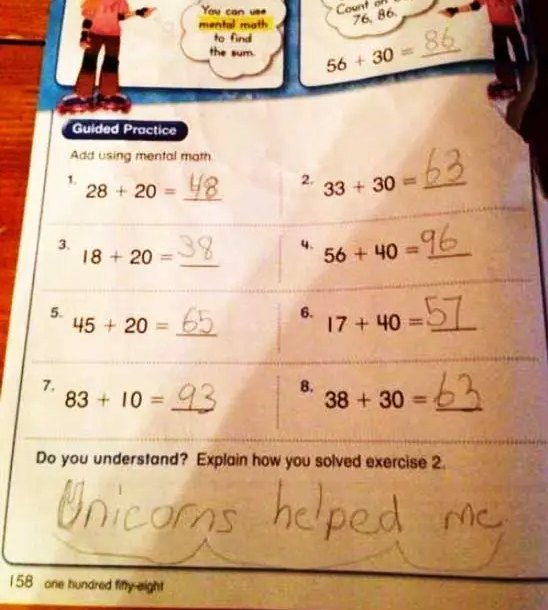 You can use
mental math
to find
the sum.
Count on
76, 86.
56 + 30 = 86
Guided Practice
Add using mental math.
1. 28 + 20 = 48
2. 33 + 30 = 63
3. 18 + 20 = 38
4. 56 + 40 = 96
5. 45 + 20 = 65
6. 17 + 40 = 57
7. 83 + 10 = 93
8. 38 + 30 = 63
Do you understand? Explain how you solved exercise 2.
Unicorns helped me
158 one hundred fifty-eight